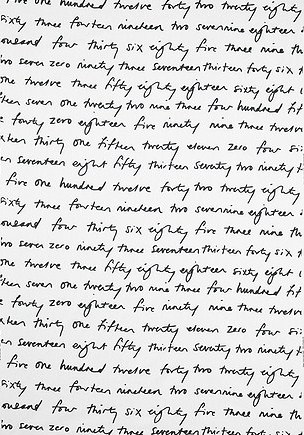 five one hundred twelve forty two twenty eighty
sixty three fourteen nineteen two seven nine eighteen
ousand four thirty six eighty five three nine th
two seven zero ninety three seventeen thirteen forty six
one twelve three fifty eighty eighteen sixty eight
ften seven one twenty two nine three four hundred fif
forty zero eighteen five ninety nine three twelve
thirty one fifteen twenty eleven zero four six
en seventeen eight fifty thirteen seventy two ninety
five one hundred twelve forty two twenty eighty
sixty three fourteen nineteen two seven nine eighteen
ousand four thirty six eighty five three nine th
two seven zero ninety three seventeen thirteen forty six
one twelve three fifty eighty eighteen sixty eight
ften seven one twenty two nine three four hundred fif
forty zero eighteen five ninety nine three twelve
thirty one fifteen twenty eleven zero four six
en seventeen eight fifty thirteen seventy two ninety
five one hundred twelve forty two twenty eighty
sixty three fourteen nineteen two seven nine eighteen
ousand four thirty six eighty five three nine th
two seven zero ninety three seventeen thirteen forty six